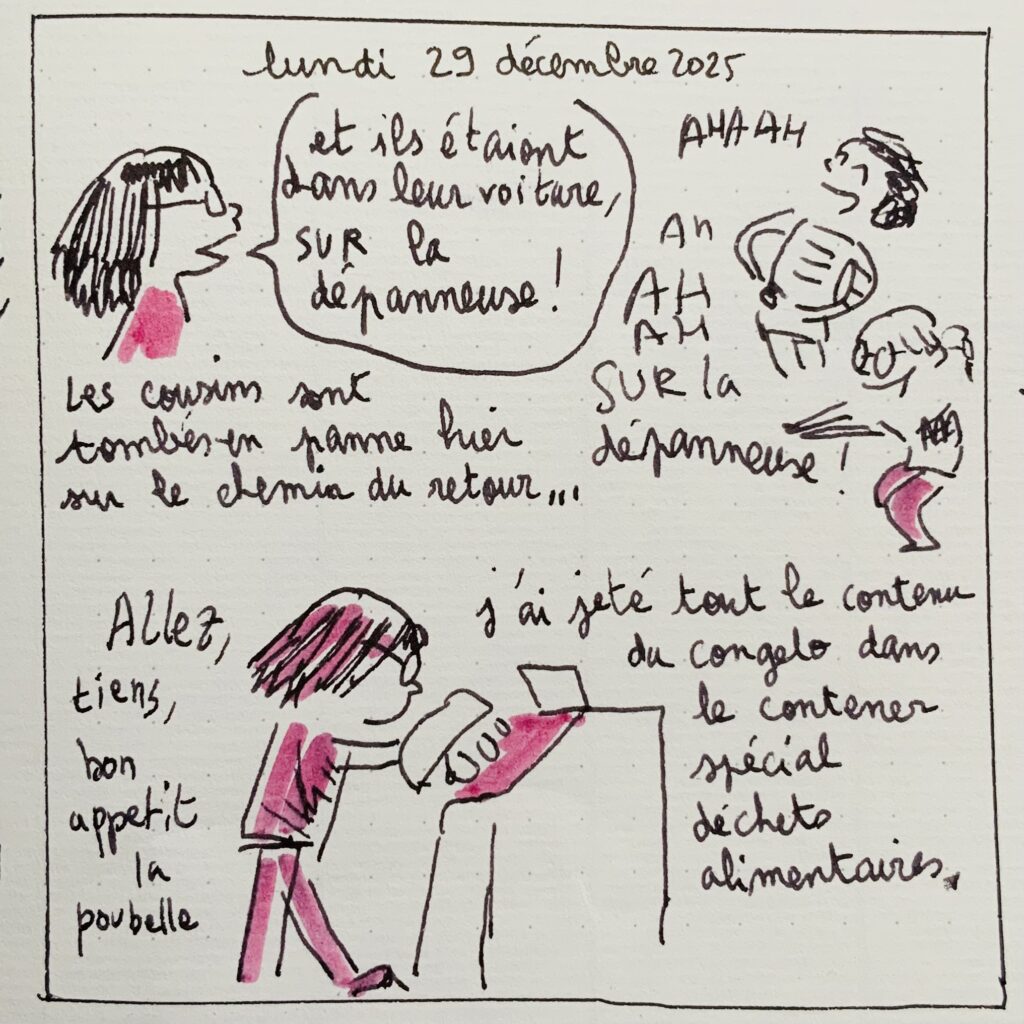 lundi 29 décembre 2025
et ils étaient
dans leur voiture,
SUR la
dépanneuse !
AHAAH
AH
AH
AH
SUR la
dépanneuse !
Les cousins sont
tombés en panne hier
sur le chemin du retour...
Allez,
tiens,
bon
appetit
la
poubelle
j'ai jeté tout le contenu
du congelo dans
le contener
spécial
déchets
alimentaires.